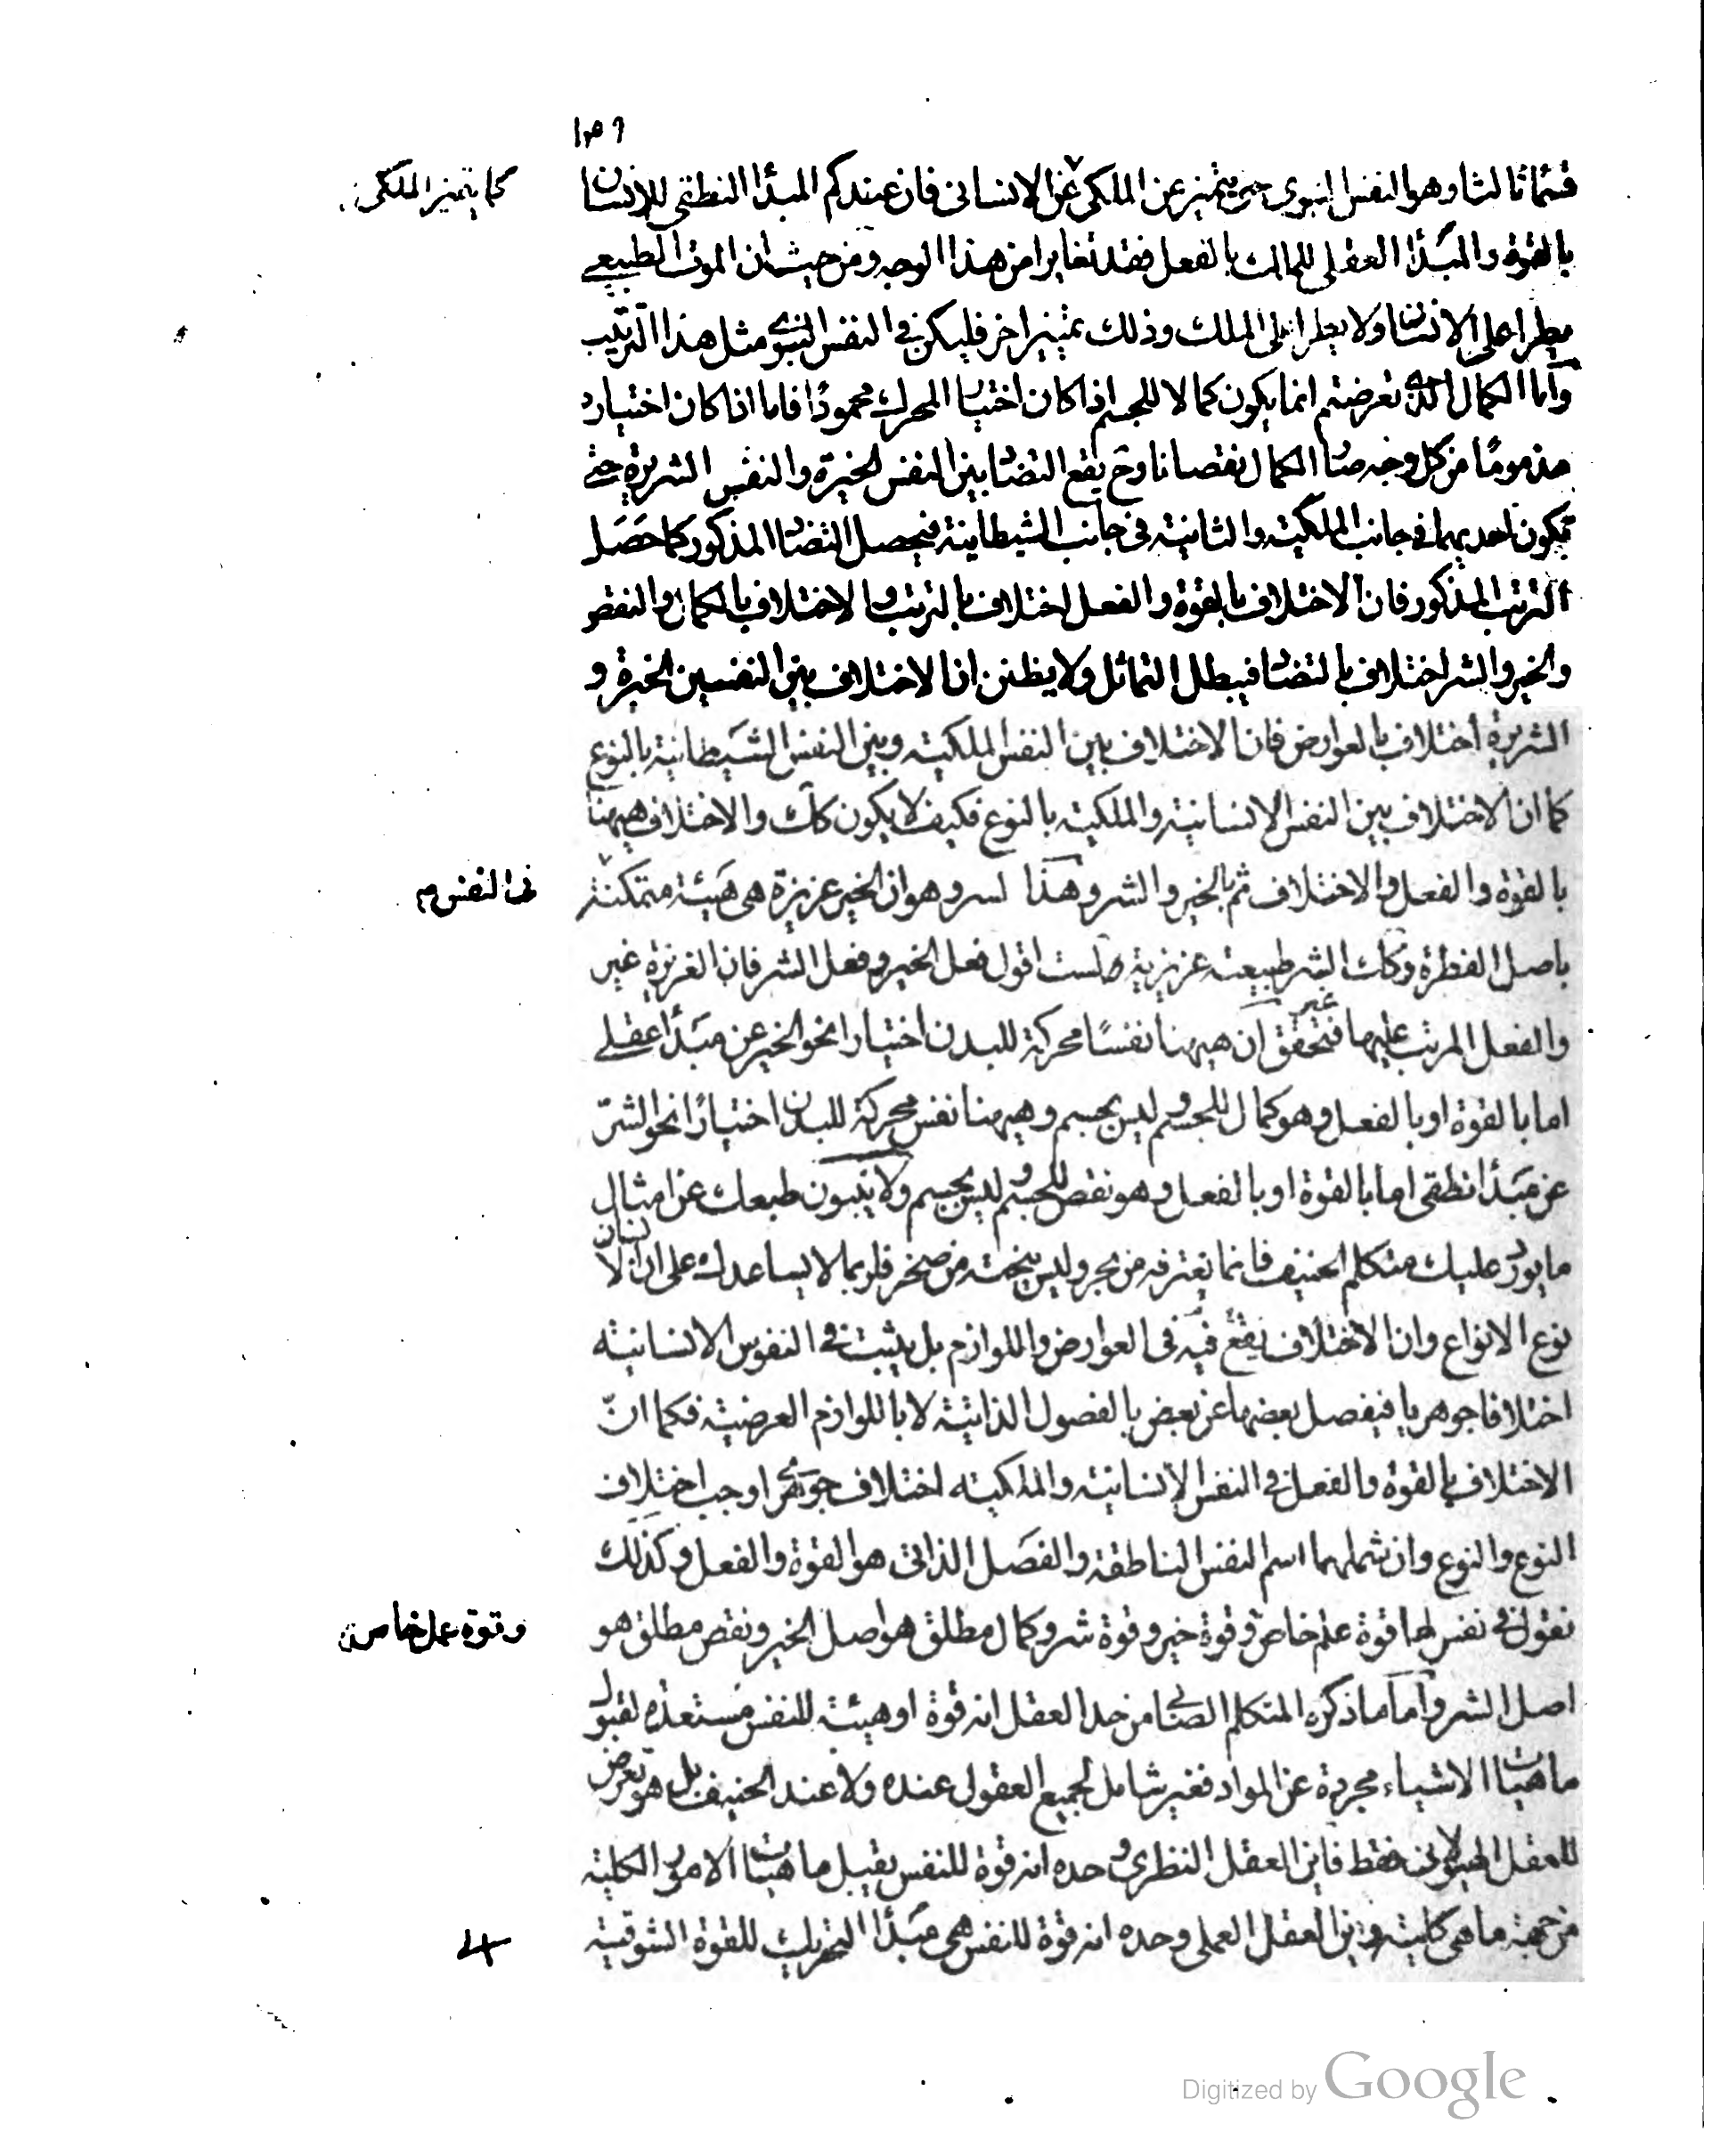 ١٥٩
قسما ثالثا وهو النفس النبوي حتى يتميز عن الملكي عن الانساني فان عندكم المبدأ النطقي للانسان
كما يتميز الملكي
بالقوة والمبدأ العقلي للملك بالفعل فقد تغايرا من هذا الوجه ومن حيث ان الموت الطبيعي
يطرا على الانسان ولا يطرا على الملك وذلك تمييز اخر فليكن في النفس النبوي مثل هذا الترتيب
واما الكمال الذي تعرضتم انما يكون كمالا للجسم اذا كان اختيار المحرك محمودا فاما اذا كان اختياره
مذموما من كل وجه صار الكمال نقصانا وح يقع التضاد بين النفس الخيرة والنفس الشريرة حتى
تكون احديهما في جانب الملكية والثانية في جانب الشيطانية فيحصل التضاد المذكور كما حصل
الترتب المذكور فان الاختلاف بالقوة والفعل اختلاف بالترتب والاختلاف بالكمال والنقص
والخير والشر اختلاف بالتضاد فيبطل التماثل ولا يظنن ان الاختلاف بين النفسين الخيرة و
الشريرة اختلاف بالعوارض فان الاختلاف بين النفس الملكية وبين النفس الشيطانية بالنوع
كما ان الاختلاف بين النفس الانسانية والملكية بالنوع فكيف لا يكون كك والاختلاف هيهنا
بالقوة والفعل والاختلاف ثم بالخير والشر وهذا لسر وهو ان الخير غريزة هي هيئة متمكنة
في النفس م
باصل الفطرة وكك الشر طبيعة غريزية ولست اقول فعل الخير وفعل الشر فان الغريزة غير
والفعل المرتب عليها غير فتحقق ان هيهنا نفسا محركة للبدن اختيارا نحو الخير عن مبدأ عقلي
اما بالقوة او بالفعل وهو كمال للجسم و ليس بجسم وهيهنا نفس محركة للبدن اختيارا نحو الشر
عن مبدأ نطقي اما بالقوة او بالفعل وهو نقص للجسم و ليس بجسم ولا ينبون طبعك عن امثال
ما يورد عليك متكلم الحنيف فانما يغترفه من بحر وليس ينحته من صخر فلربما لا يساعدك على ان الانسان
نوع الانواع وان الاختلاف يقع فيه في العوارض واللوازم بل يثبت في النفوس الانسانية
اختلافا جوهريا فيفصل بعضها عن بعض بالفصول الذاتية لا باللوازم العرضية فكما ان
الاختلاف بالقوة والفعل في النفس الانسانية والملكية اختلاف جوهري اوجب اختلاف
النوع والنوع وان شملهما اسم النفس الناطقة والفصل الذاتي هو القوة والفعل وكذلك
نقول في نفس لها قوة علم خاص وقوة خير وقوة شر وكمال مطلق هو اصل الخير ونقص مطلق هو
وقوة عمل خاص
اصل الشر واما ما ذكره المتكلم الصابي من حد العقل انه قوة او هيئة للنفس مستعدة لقبول
ماهيات الاشياء مجردة عن المواد فغير شامل لجميع العقول عنده ولا عند الحنيف بل هو تعرض
للعقل الهيولاني فقط فاين العقل النظري وحده انه قوة للنفس يقبل ماهيات الامور الكلية
من جهة ما هي كلية واين العقل العملي وحده انه قوة للنفس هي مبدأ التحريك للقوة الشوقية
الى
Digitized by Google